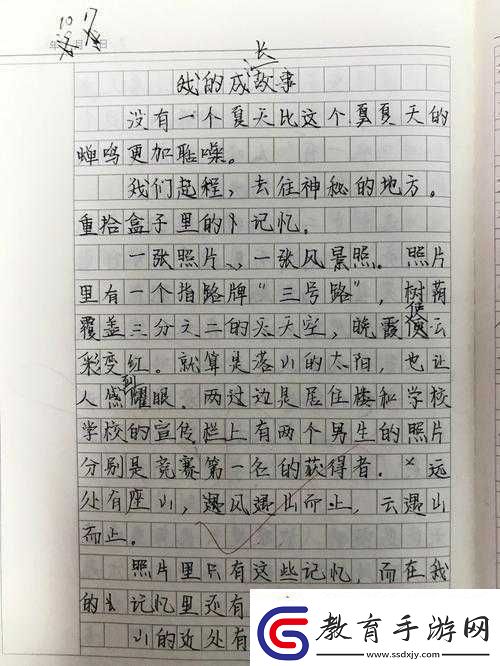 10 17
年 月 日
我的成长故事
没有一个夏天比这个夏夏天的
蝉鸣更加聒噪。
我们起程，去往神秘的地方。
重拾盒子里的记忆。
一张照片、一张风景照。照片
里有一个指路牌“三号路”，树荫
覆盖三分之二的天天空，晚霞使云
彩变红。就算是落山的太阳，也让
人感到耀眼。两过边是居住楼和学校
学校的宣传栏上有两个男生的照片
分别是竞赛第一名的获得者。远
处有座山，遇风遇山而止，云遇山
而止。
照片里只有这些记忆，而在我
的记忆里还有
山的近处有
教育手游网
www.ssdxjy.com